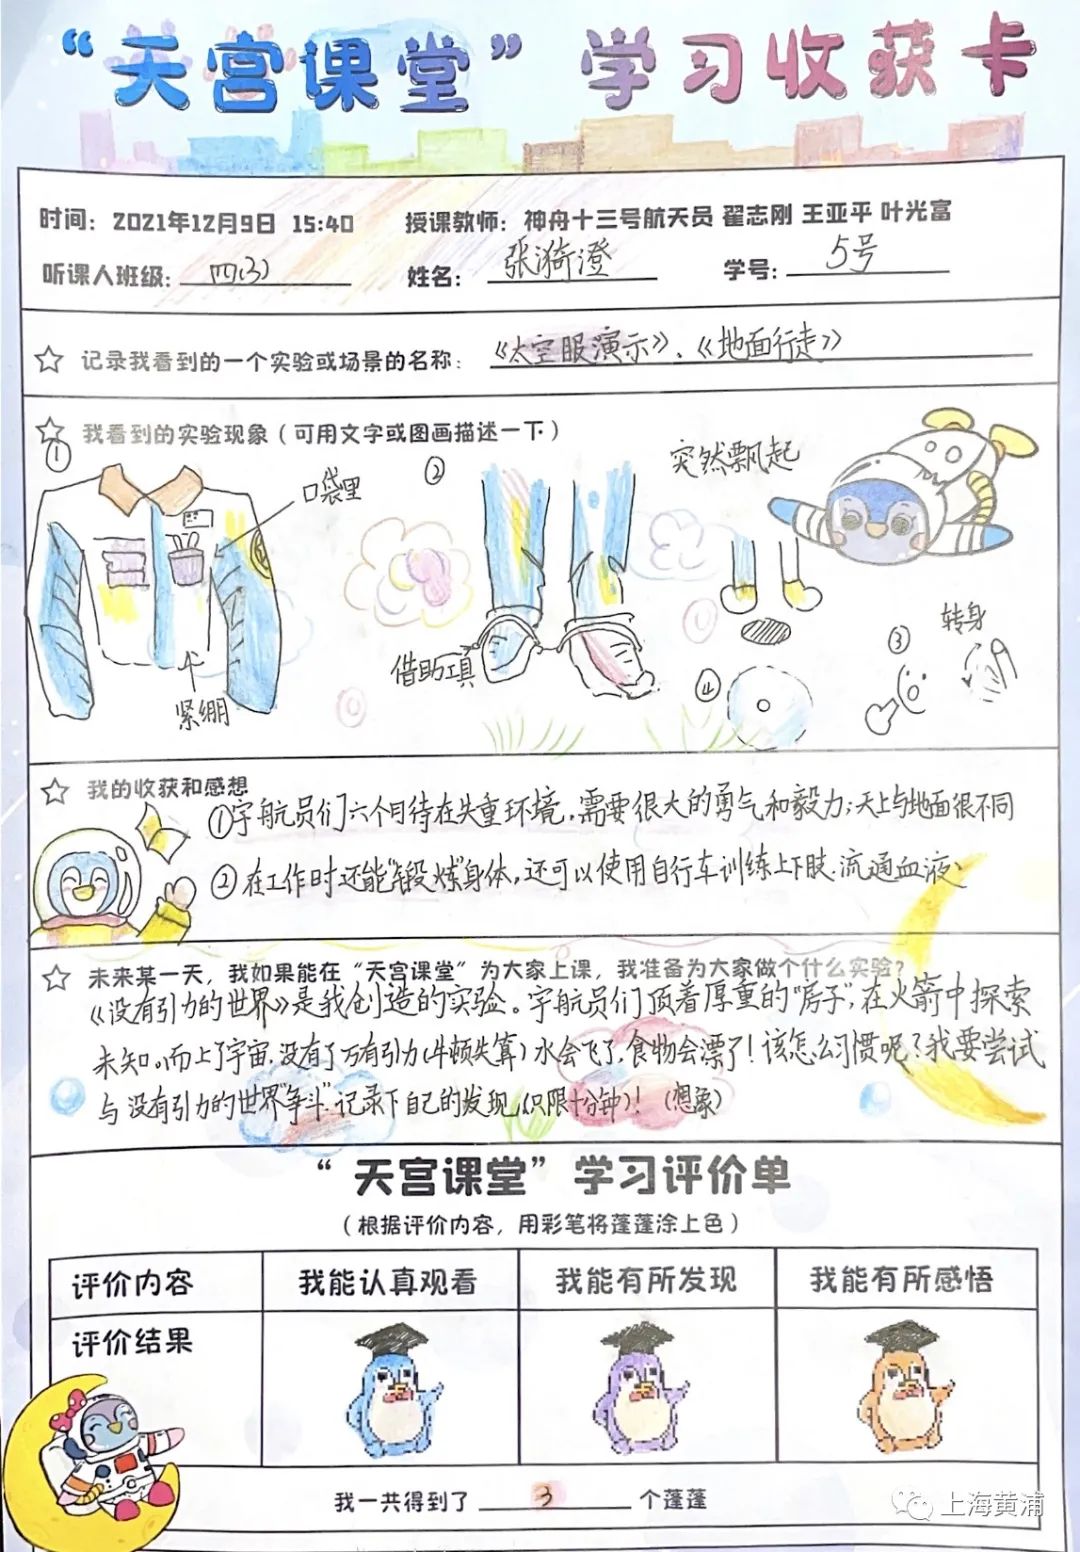 “天宫课堂”学习收获卡
时间：2021年12月9日 15:40 授课教师：神舟十三号航天员 翟志刚 王亚平 叶光富
听课人班级：四(3) 姓名：张漪澄 学号：5号
记录我看到的一个实验或场景的名称：《太空服演示》、《地面行走》
我看到的实验现象（可用文字或图画描述一下）
①
口袋里
紧绷
②
借助工具
突然飘起
③
转身
④
我的收获和感想
①宇航员们六个月待在失重环境，需要很大的勇气和毅力；天上与地面很不同
②在工作时还能“锻炼”身体，还可以使用自行车训练上下肢.流通血液、
未来某一天，我如果能在“天宫课堂”为大家上课，我准备为大家做个什么实验？
《没有引力的世界》是我创造的实验。宇航员们顶着厚重的“房子”，在火箭中探索
未知。而上了宇宙，没有了万有引力（牛顿失算）水会飞了，食物会漂了！该怎么习惯呢？我要尝试
与没有引力的世界“争斗”.记录下自己的发现（只限十分钟）！（想象）
“天宫课堂”学习评价单
（根据评价内容，用彩笔将蓬蓬涂上色）
评价内容 我能认真观看 我能有所发现 我能有所感悟
评价结果
我一共得到了 3 个蓬蓬
上海黄浦